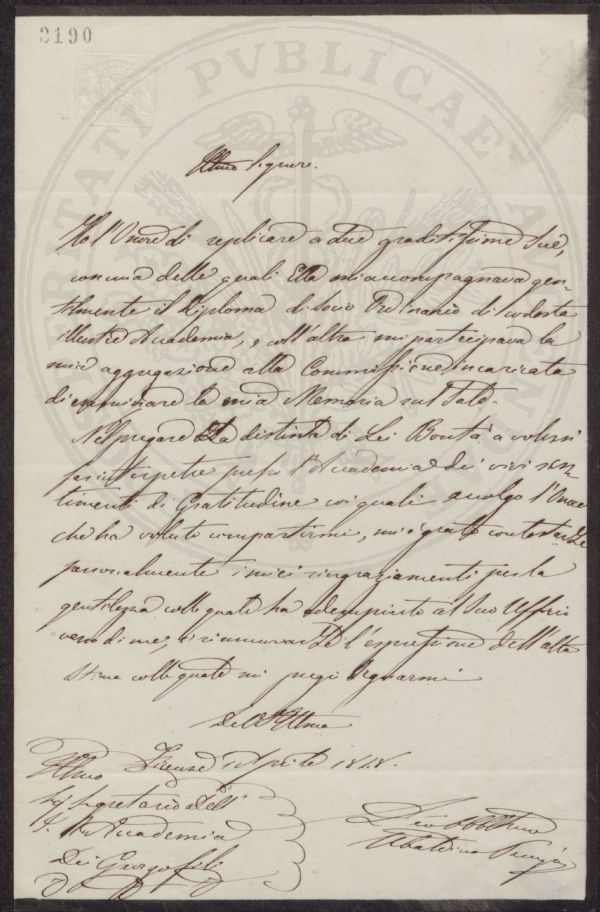 2190
PROSPERITATI PVBLICAE AVGENDAE
Illmo Signore.
Ho l'Onore di replicare a due graditissime Sue,
con una delle quali Ella mi accompagnava gen-
tilmente il Diploma di Socio Ordinario di codesta
illustre Accademia, e coll'altra mi participava la
mia aggregazione alla Commissione incaricata
di esaminare la mia Memoria sul Sale.
Nel pregare la distinta di Lei Bontà a volersi
far interpetre presso l'Accademia dei vivi sen-
timenti di Gratitudine coi quali accolgo l'Onore
che ha voluto compartirmi, mi è grato contestarLe
personalmente i miei ringraziamenti per la
gentilezza colla quale ha adempiuto al Suo Ufficio
verso di me, e rinnuovarLe l'espressione dell'alta
stima colla quale mi pregio segnarmi
Di VS Illma
Firenze Aprile 1848.
Illmo
Sig Segretario dell'
I. R. Accademia
dei Georgofili
Devo Obbmo
Ubaldino Peruzzi